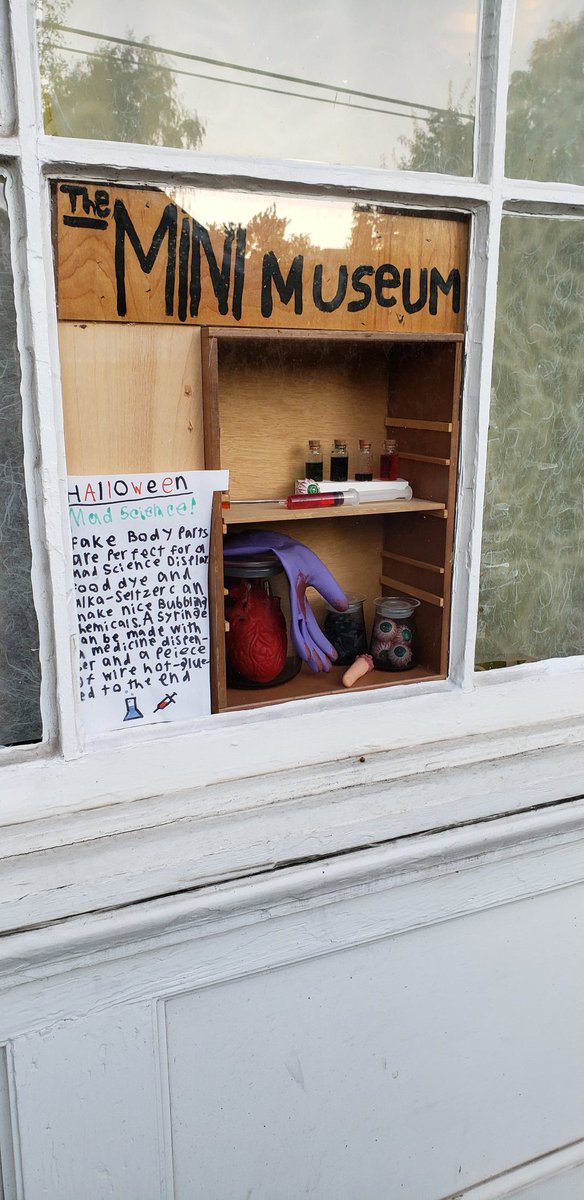 The MINI MUSEUM
HALLOWEEN
Mad Science!
Fake Body Parts
are Perfect for a
Mad Science Display
Food dye and
Alka-Seltzer can
make nice Bubbling
chemicals. A syringe
can be made with
a medicine dispen-
ser and a peiece
of wire hot-glue-
ed to the end